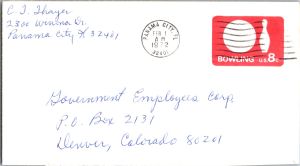 C. J. Thayer
2300 Winona Dr.
Panama City, Fl 32401
PANAMA CITY, FL
FEB 1
A M
1972
32401
BOWLING U.S. 8c
Government Employees Corp
P.O. Box 2131
Denver, Colorado 80201